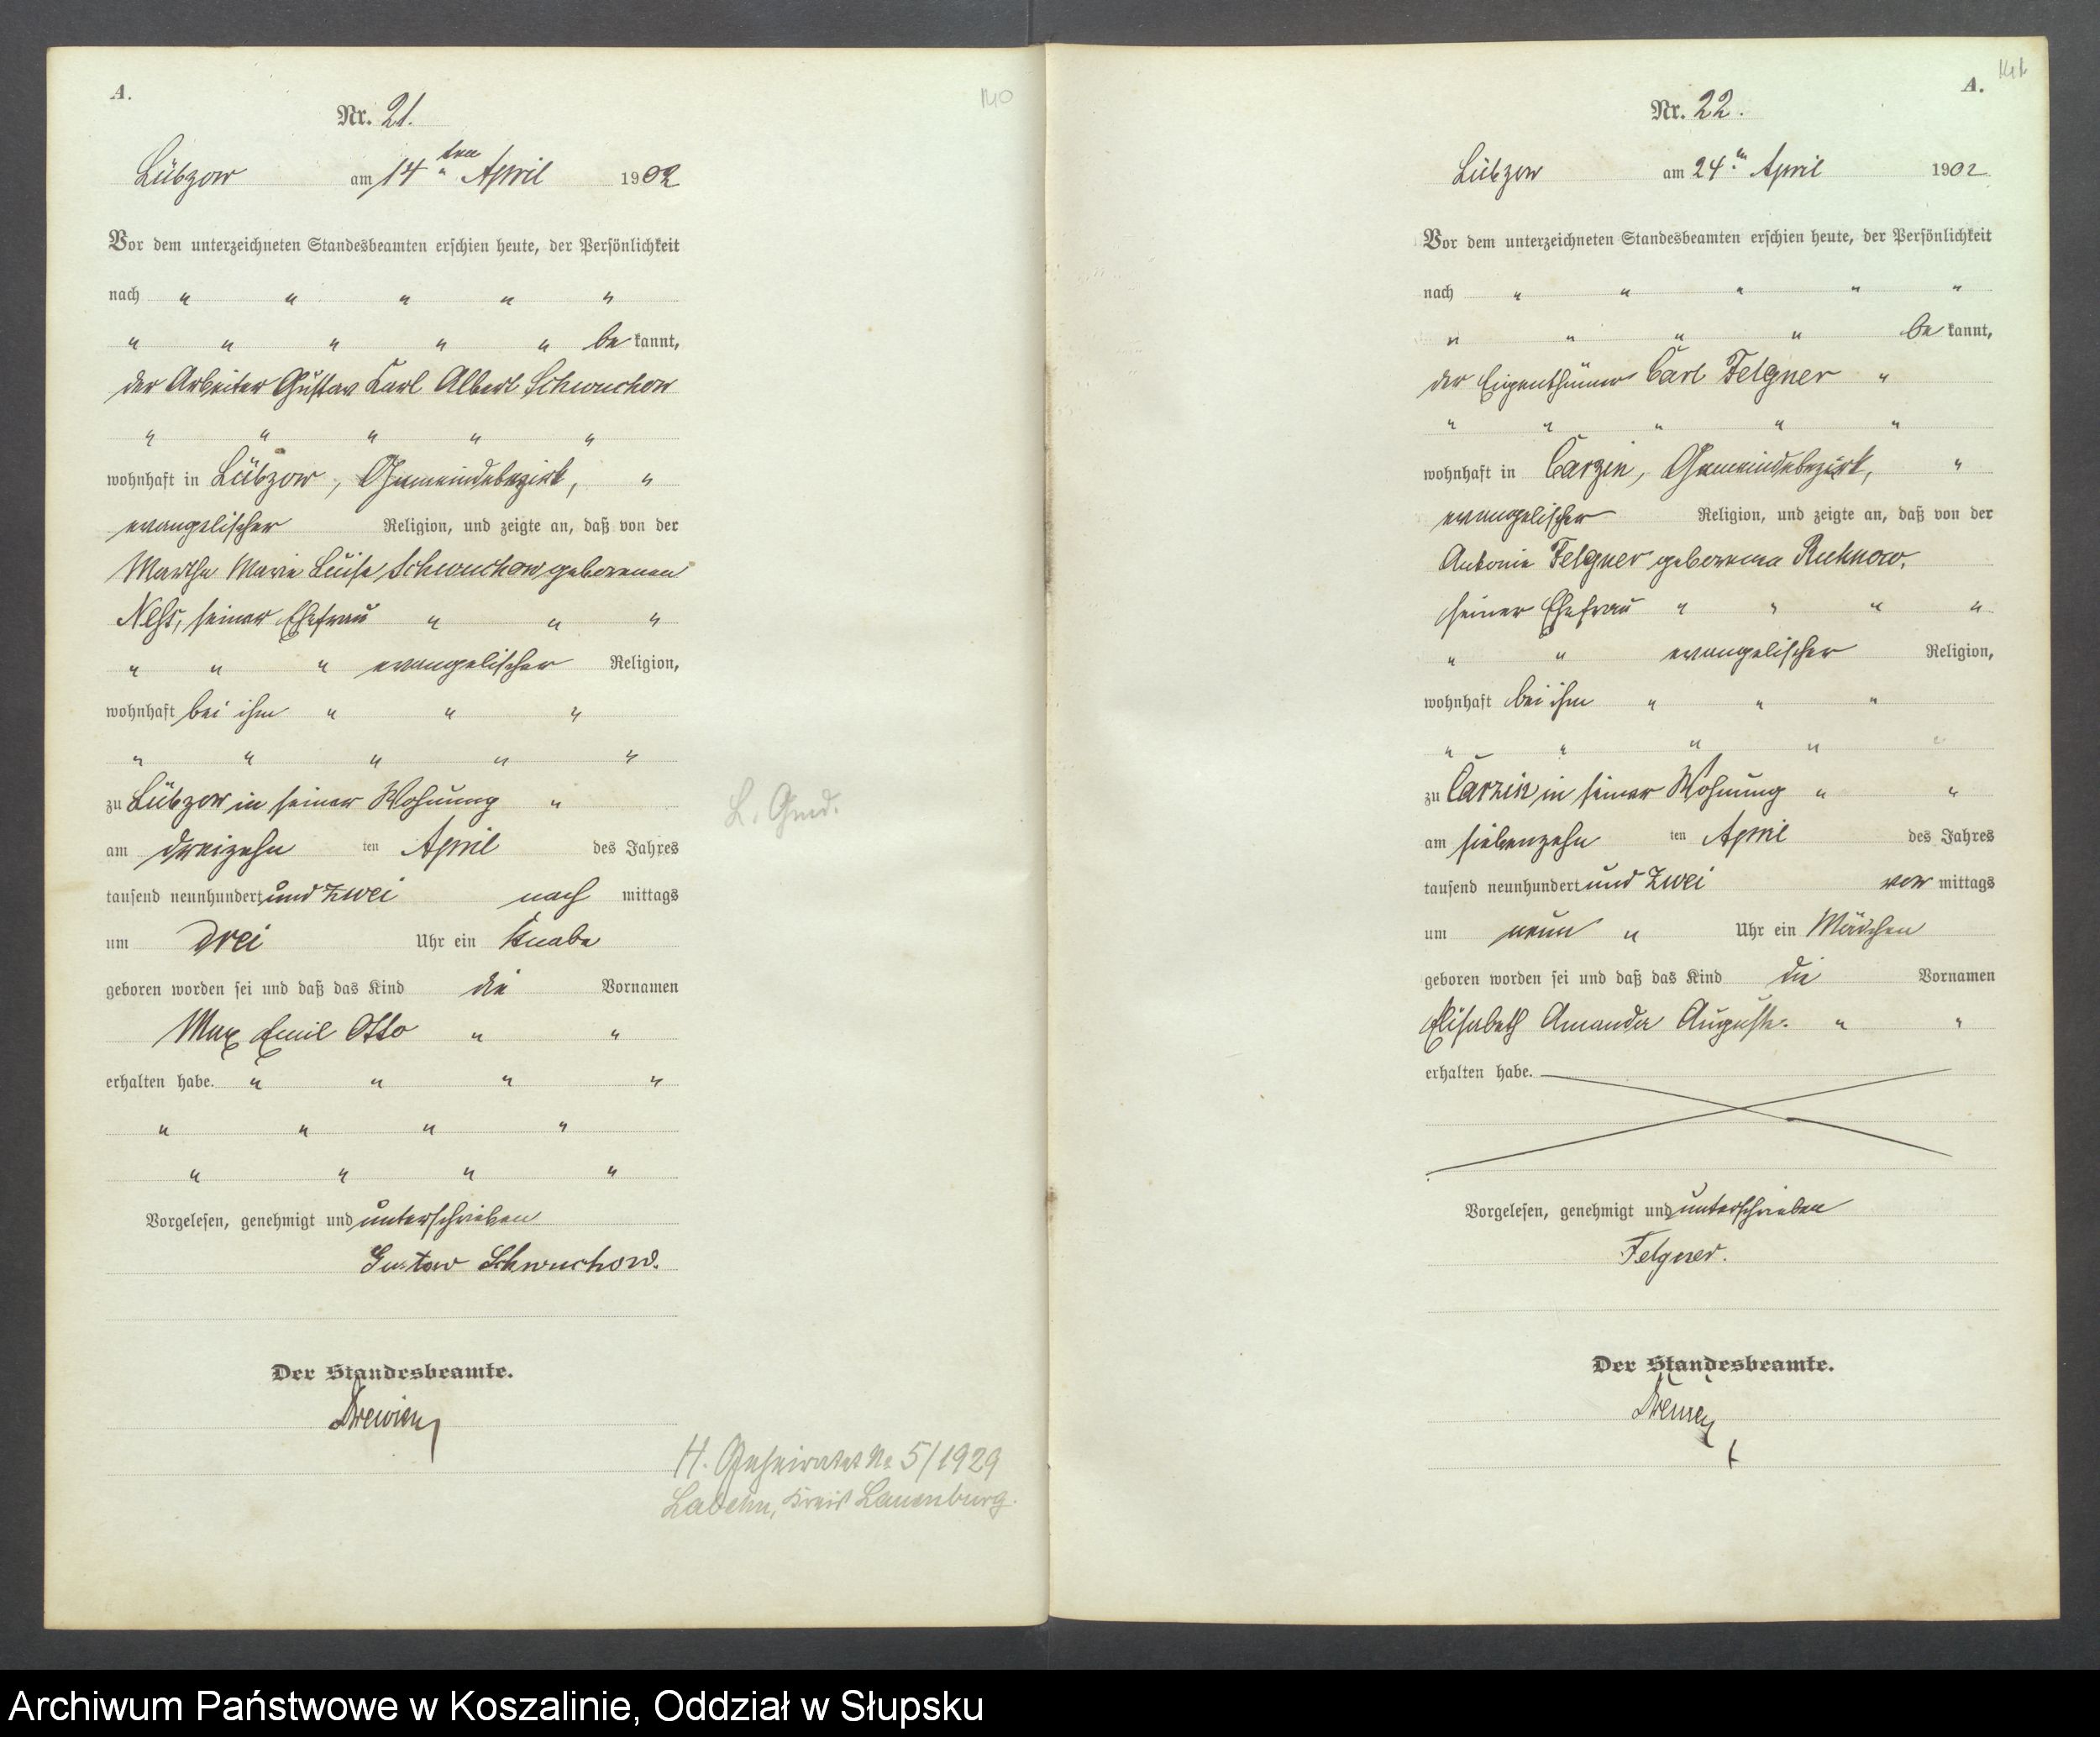 A.
140
Nr. 21.
Lübzow am 14ten April 1902
Vor dem unterzeichneten Standesbeamten erschien heute, der Persönlichkeit
nach " " " " "
" " " " " be kannt,
der Arbeiter Gustav Karl Albert Schwuchow
" " " " "
wohnhaft in Lübzow, Gemeindebezirk, "
evangelischer Religion, und zeigte an, daß von der
Martha Marie Luise Schwuchow geborenen
Neß, seiner Ehefrau " " "
" " " evangelischer Religion,
wohnhaft bei ihm " " "
" " " " "
zu Lübzow in seiner Wohnung "
am dreizehn ten April des Jahres
tausend neunhundert und zwei nach mittags
um drei Uhr ein Knabe
geboren worden sei und daß das Kind die Vornamen
Max Emil Otto " "
erhalten habe. " " " "
" " " "
" " " "
Vorgelesen, genehmigt und unterschrieben
Gustav Schwuchow.
Der Standesbeamte.
Drewien
L. Gmd.
H. Geheiratet No 5/1929
Labehn, Kreis Lauenburg.
A.
141
Nr. 22.
Lübzow am 24ten April 1902
Vor dem unterzeichneten Standesbeamten erschien heute, der Persönlichkeit
nach " " " " "
" " " " be kannt,
der Eigenthümer Carl Felgner "
" " " " "
wohnhaft in Carzin, Gemeindebezirk, "
evangelischer Religion, und zeigte an, daß von der
Antonie Felgner geborenen Ruhnow,
seiner Ehefrau " " " "
" " evangelischer Religion,
wohnhaft bei ihm " " "
" " " " "
zu Carzin in seiner Wohnung " "
am siebenzehn ten April des Jahres
tausend neunhundert und zwei vor mittags
um neun " Uhr ein Mädchen
geboren worden sei und daß das Kind die Vornamen
Elisabeth Amanda Auguste. " "
erhalten habe.
Vorgelesen, genehmigt und unterschrieben
Felgner.
Der Standesbeamte.
Archiwum Państwowe w Koszalinie, Oddział w Słupsku